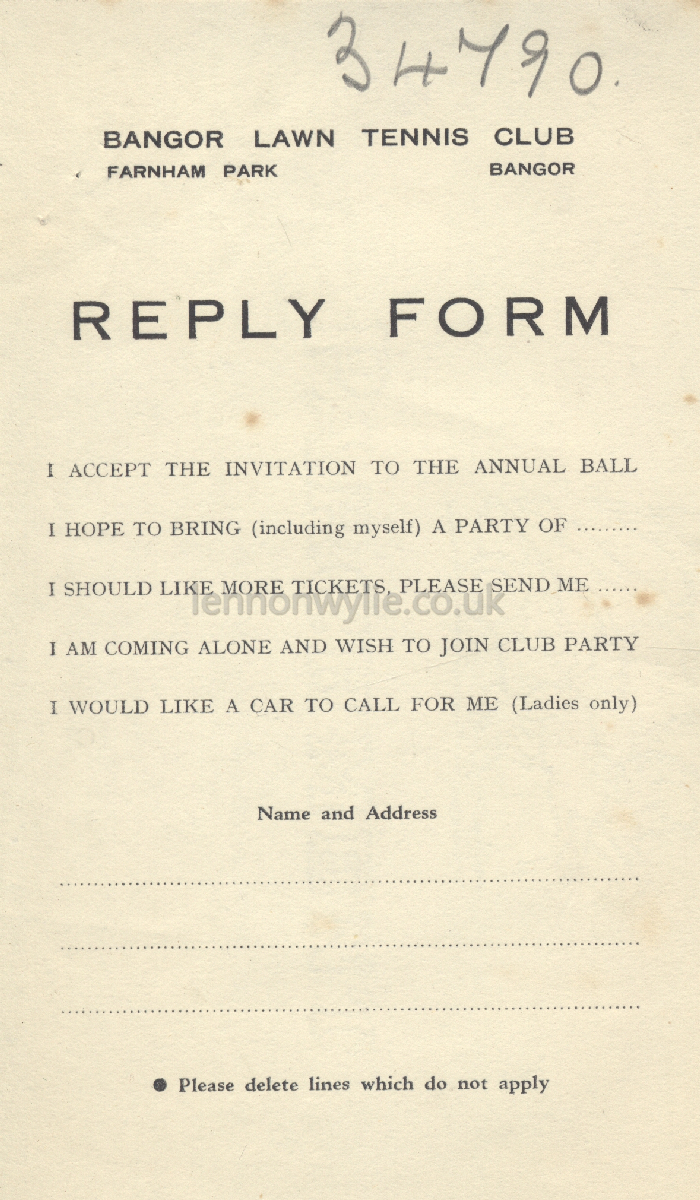 34790.
BANGOR LAWN TENNIS CLUB
FARNHAM PARK BANGOR
REPLY FORM
I ACCEPT THE INVITATION TO THE ANNUAL BALL
I HOPE TO BRING (including myself) A PARTY OF .........
I SHOULD LIKE MORE TICKETS, PLEASE SEND ME ......
lennonwylie.co.uk
I AM COMING ALONE AND WISH TO JOIN CLUB PARTY
I WOULD LIKE A CAR TO CALL FOR ME (Ladies only)
Name and Address
● Please delete lines which do not apply